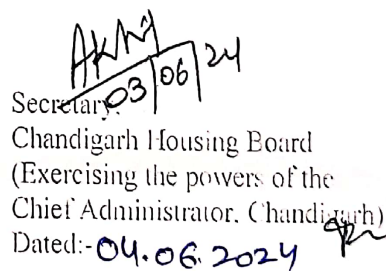 03/06/24
Secretary,
Chandigarh Housing Board
(Exercising the powers of the
Chief Administrator, Chandigarh)
Dated:-04.06.2024